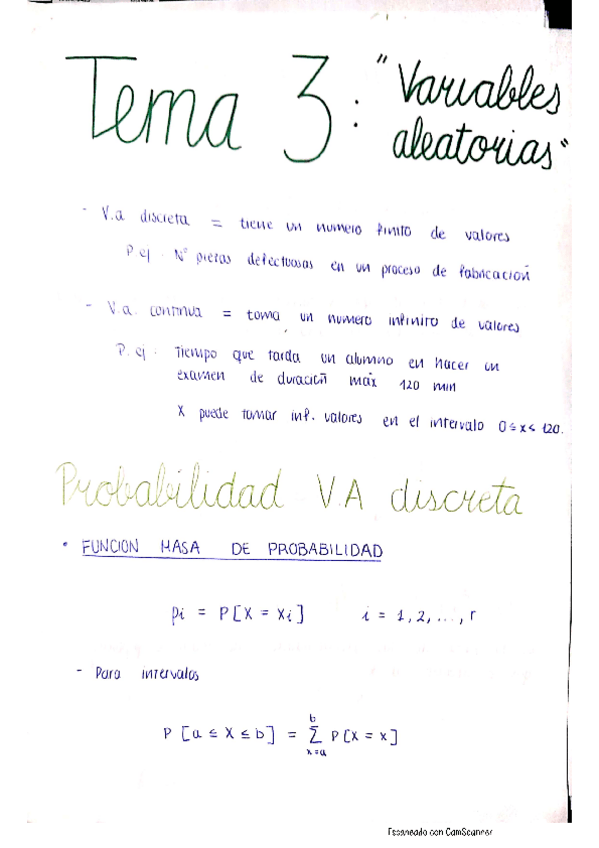 Tema 3: "Variables
aleatorias"
- V.a discreta = tiene un numero finito de valores
P. ej. Nº piezas defectuosas en un proceso de fabricación
- V.a. continua = toma un numero infinito de valores
P. ej: Tiempo que tarda un alumno en hacer un
examen de duración máx 120 min
X puede tomar inf. valores en el intervalo 0≤x≤120.
Probabilidad V.A discreta
• FUNCION MASA DE PROBABILIDAD
pi = P[X = xi] i = 1, 2, ..., r
- Para intervalos
P [a ≤ X ≤ b] = b Σ x=a P[X = x]
Escaneado con CamScanner